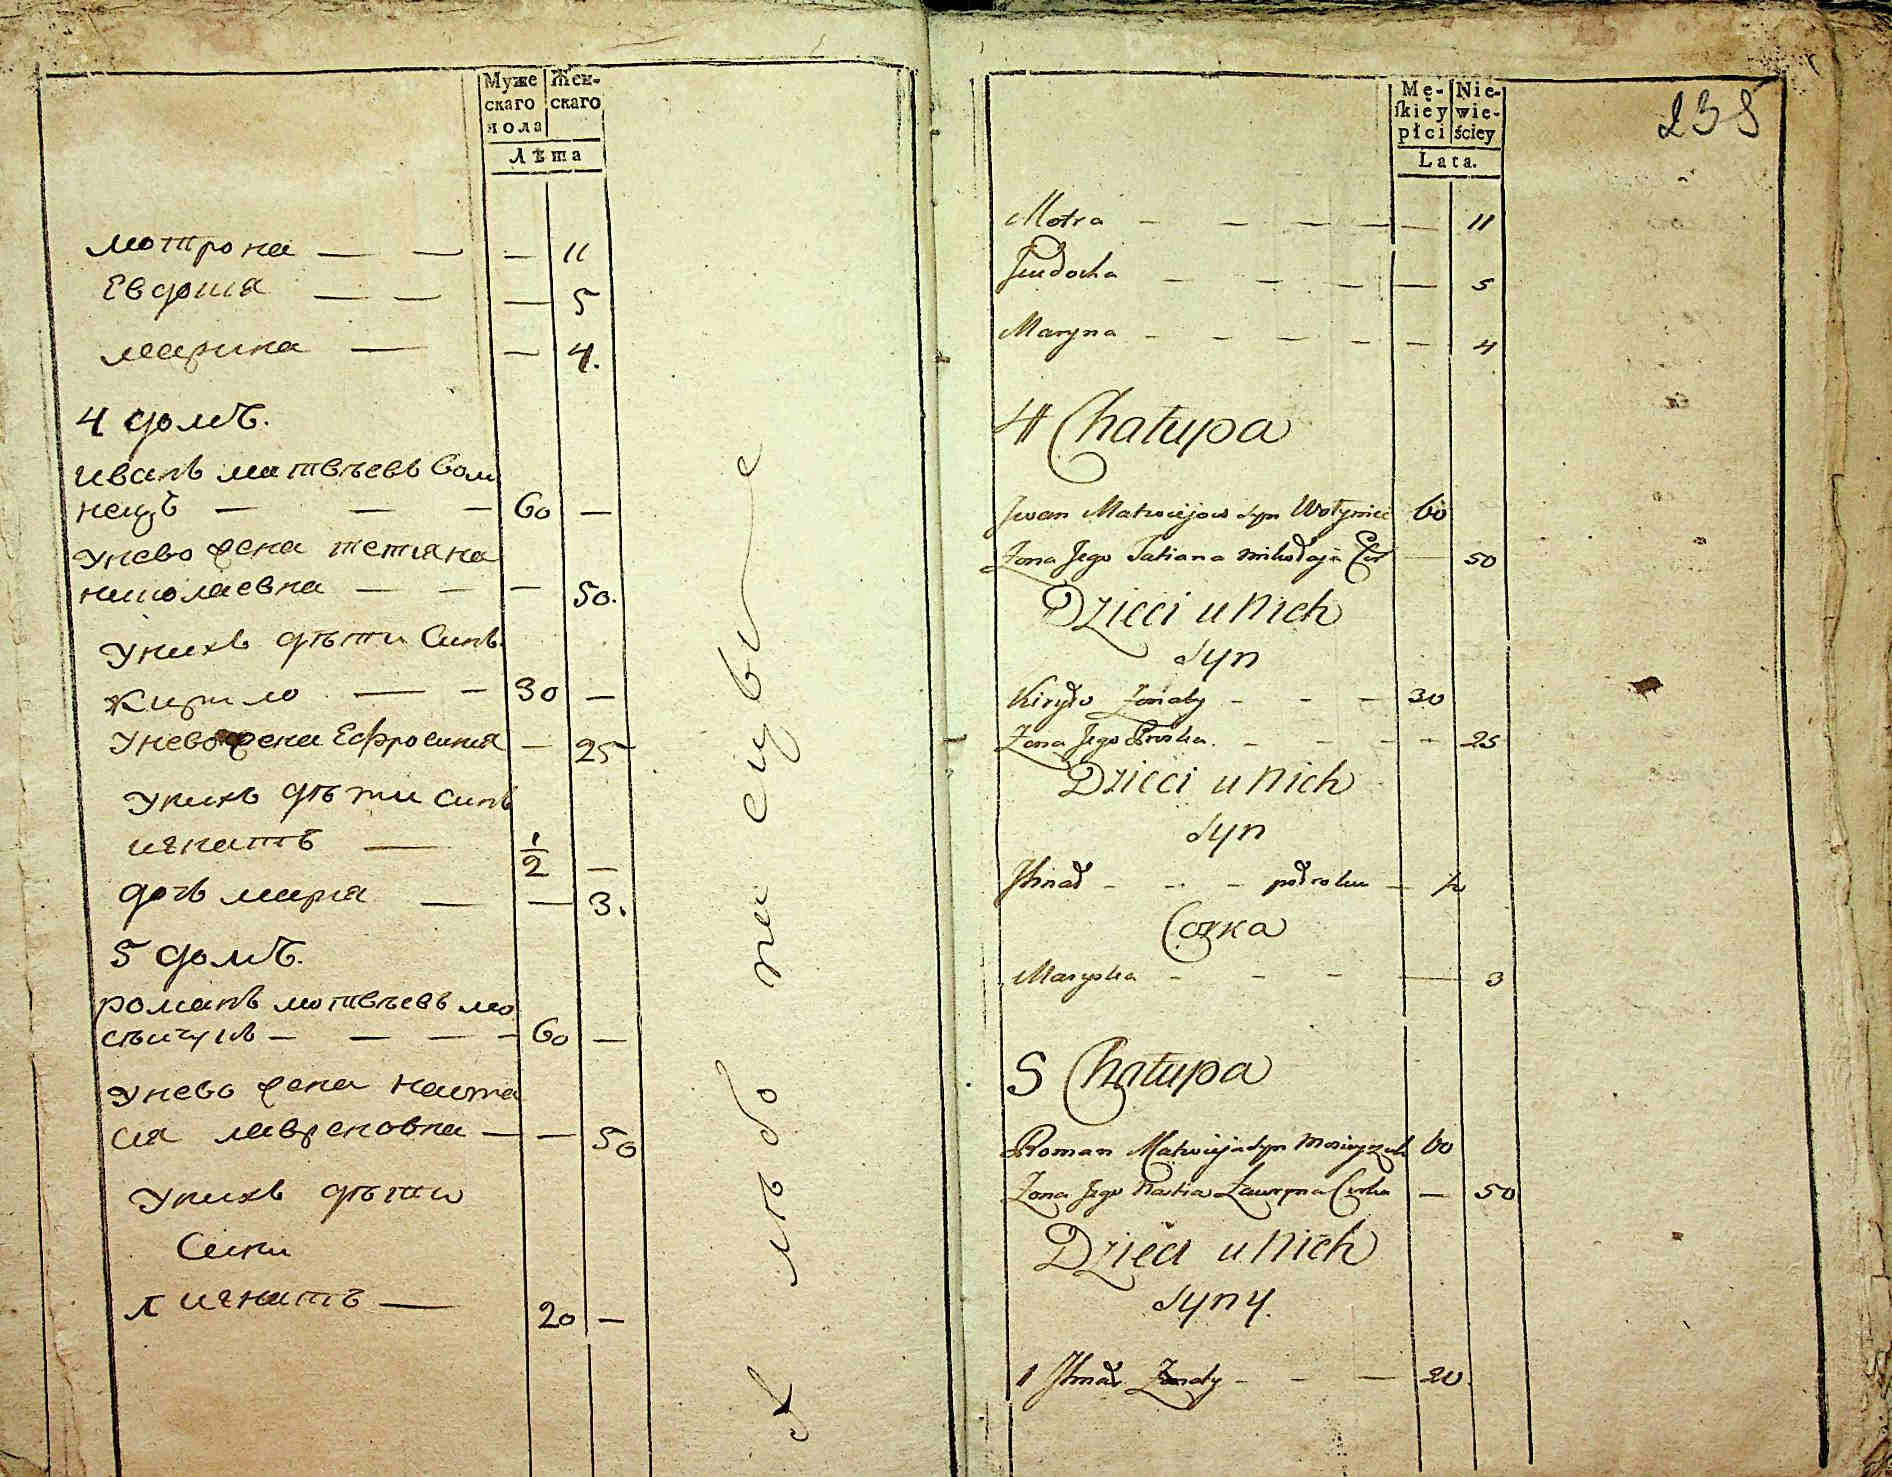 Муже
скаго
пола
Жен-
скаго
Лѣта
мотрона — — — 11
Евдошiя — — — 5
марина — — 4.
4 домъ.
иванъ матвѣевъ вол
нецъ — — — 60 —
унево жена тетiяна
николаевна — — — 50.
унихъ дѣти синъ
кирило — — 30 —
унево жена Ефросиния — 25
унихъ дѣти синъ
игнатъ — 1/2 —
дочь мария — — 3.
5 домъ.
романъ мотвѣевъ мо
сѣичукъ — — — — 60 —
унево жена наста
сия лавреновна — — 50
унихъ дѣти
Сини
игнатъ — 20 —
Mę-
skiey
płci
Nie-
wie-
ściey
Lata.
235
Motra — — — — — 11
Jewdocha — — — — 5
Maryna — — — — — 4
4 Chałupa
Jwan Matwiejow syn Wołyniec 60
Zona Jego Tatiana Mikołaja — 50
Dzieci u Nich
Syn
Kiryło Zonaty — — — 30
Zona Jego Pruska. — — — — 25
Dzieci u Nich
Syn
Jhnat — — — poł roku — 1/2
Corka
Maryska — — — — 3
5 Chałupa
Roman Matwieja syn 60
Zona Jego Nastia Ławryna Corka — 50
Dzieci u Nich
Syny.
1 Jhnat Zonaty — — — 20.